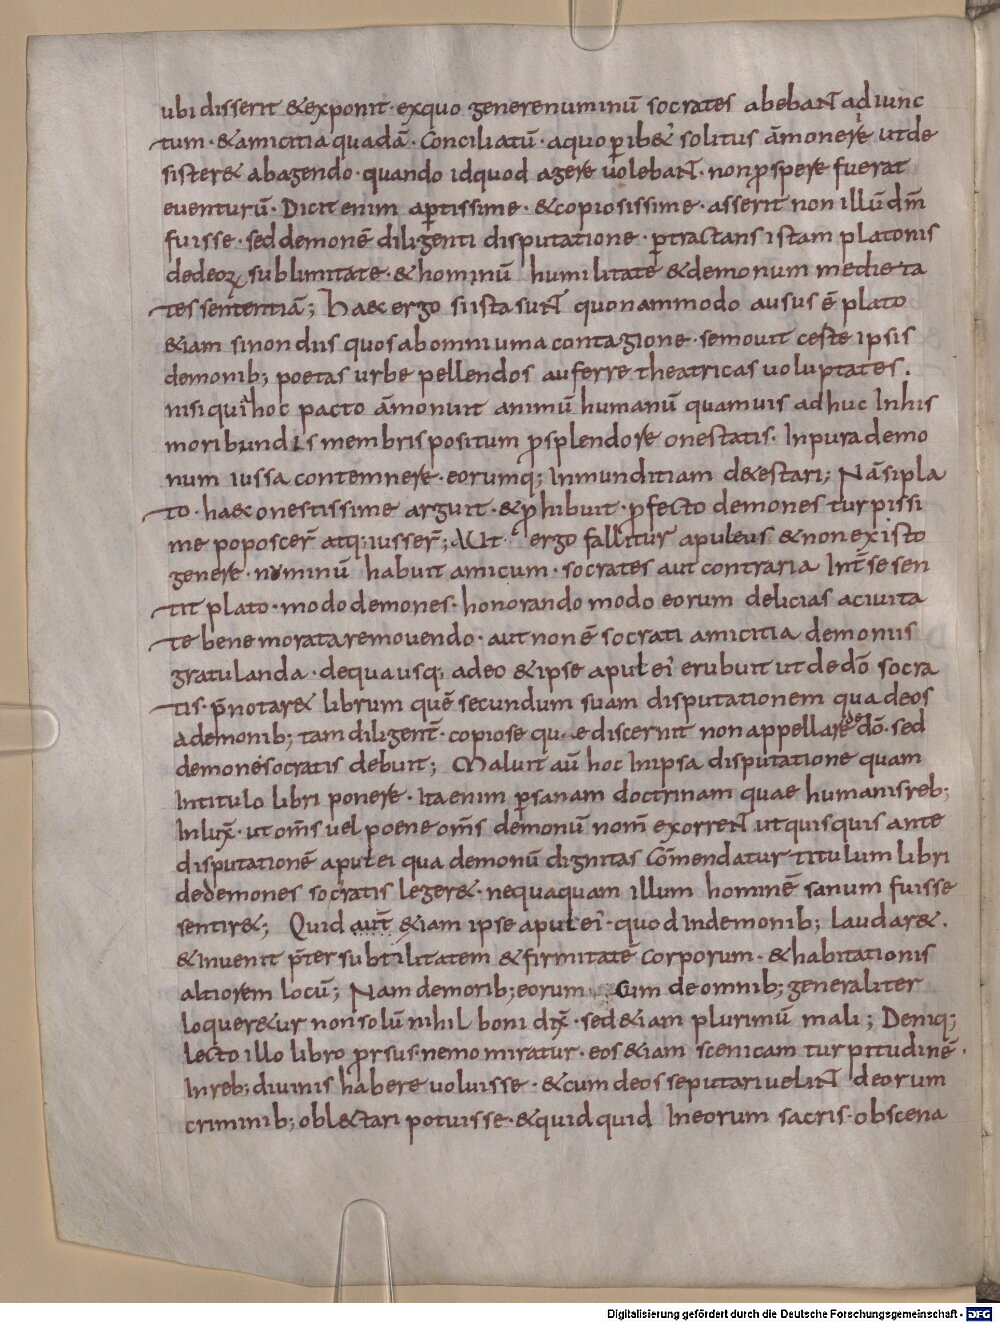 ubi disserit & exponit · ex quo genere numinū socrates abebaNt adiunc
tum · & amicitia quadā · Conciliatū · a quo ꝑ ib& solitus āmonere ut de
sister& ab agendo · quando id quod agere uolebaNt · non ꝓspere fuerat
euenturū · Dicit enim aꝑtissime · & copiosissime · asserit non illū dm̄
fuisse · sed demonē diligenti disputatione · ꝑtractans istam platonis
de deoꝝ sublimitate · & hominū humilitate & demonum medieta
tes sententiā; Haec ergo si ista suNt quonammodo ausus ē plato
&iam si non diis quos ab omni uma contagione · semouit ceste ipsis
demonib; poetas urbe pellendos auferre theatricas uoluptates .
nisi qui hoc pacto āmonuit animū humanū quamuis adhuc In his
moribundis membris positum ꝓ splendore onestatis · Inpura demo
num iussa contemnere · eorumq; Inmunditiam d&estari; Nā si pla
to · haec onestissime arguit · & ꝓhibuit · ꝓfecto demones turpissi
me poposcer̄ atq; iusser̄; AUt ergo fallitur apuleus & non ex isto
genere · numinū habuit amicum · socrates aut contraria Int̄ se sen
tit plato · modo demones · honorando modo eorum delicias a ciuita
te bene morata remouendo · aut non ē socrati amicitia demoniis
gratulanda · de qua usq; adeo & ipse apulei erubuit ut de dō socra
tis · p̄notar& librum quē secundum suam disputationem qua deos
a demonib; tam diligent̄ · copiose que discernit non appellare de dō · sed
demone socratis debuit; Maluit aū hoc In ipsa disputatione quam
In titulo libri ponere · Ita enim ꝑ sanam doctrinam quae humanis reb;
Inlux̄ · ut om̄s uel poene om̄s demonū nom̄ exorreNt ut quisquis ante
disputationē apulei qua demonū dignitas Cōmendatur titulum libri
de demones socratis leger& · nequaquam illum hominē sanum fuisse
sentir&; Quid aut̄ &iam ipse apulei · quod In demonib; laudar& .
& inuenit p̄ter subtilitatem & firmitatē Corporum · & habitationis
altiorem locū; Nam de morib; eorum Cum de omnib; generaliter
loquer&ur non solū nihil boni dix̄ · sed &iam plurimū mali; Deniq;
lecto illo libro ꝓrsus · nemo miratur · eos &iam scenicam turpitudinē ·
In reb; diuinis habere uoluisse · & cum deos se putari ueliNt deorum
criminib; obl&tari potuisse · & quid quid In eorum sacris · obscena
Digitalisierung gefördert durch die Deutsche Forschungsgemeinschaft - DFG